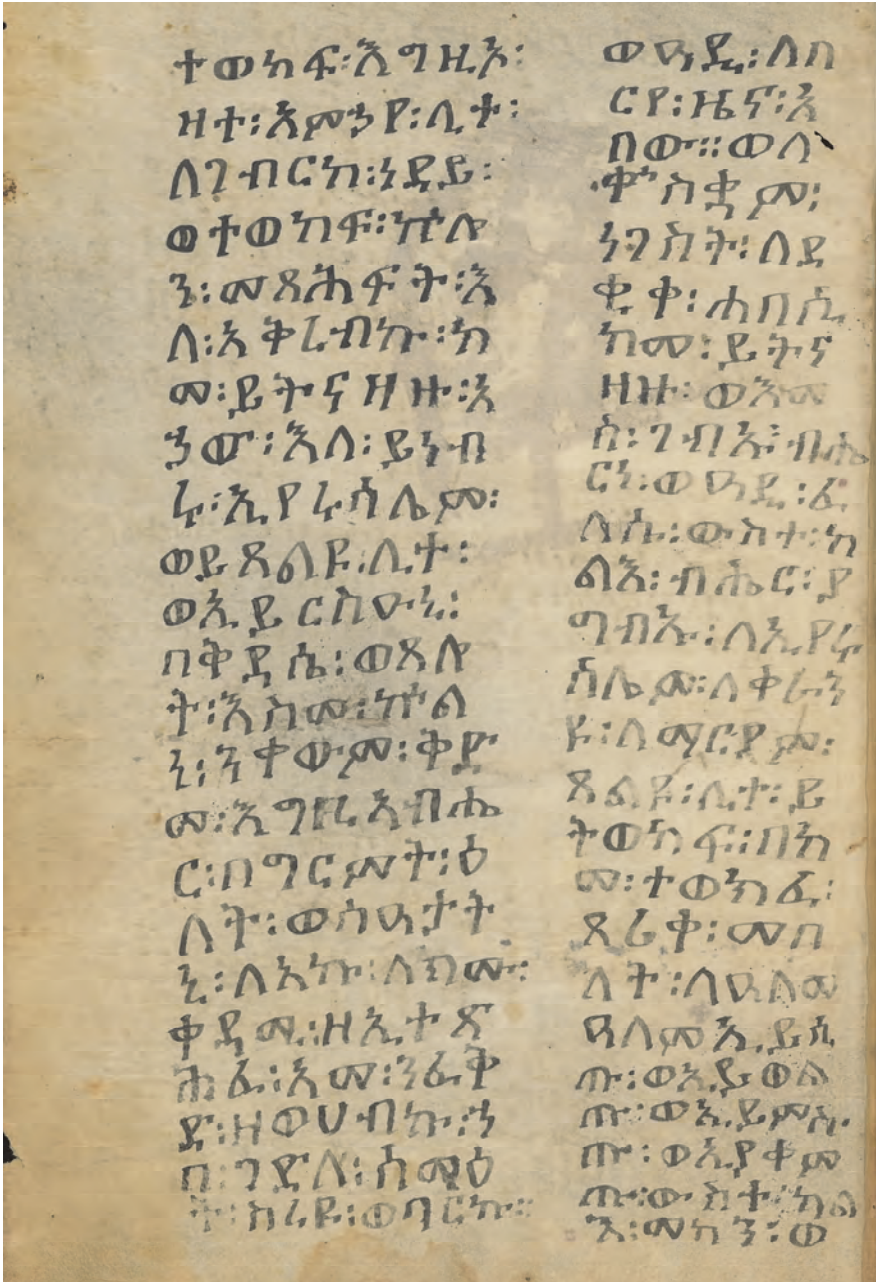 ተወክፍ፡እግዚኦ፡
ዛተ፡አምኃየ፡ሊተ፡
ለገብርከ፡ነዳይ፡
ወተወከፍ፡ኵሎ
ን፡መጻሕፍት፡እ
ለ፡አቅረብኩ፡ከ
መ፡ይትናዘዙ፡አ
ኃው፡እለ፡ይነብ
ሩ፡ኢየሩሳሌም፡
ወይጸልዩ፡ሊተ፡
ወኢይርስዑኒ፡
በቅዳሴ፡ወጸሎ
ት፡እስመ፡ኵል
ነ፡ንቀውም፡ቅድ
መ፡እግዚአብሔ
ር፡በግርምት፡ዕ
ለት፡ወሰዓታት
ኒ፡ለአኩ፡ለክሙ፡
ቀዳሚ፡ዘኢተጽ
ሕፈ፡አመ፡ንፈቅ
ድ፡ዘወሀብኩ፡ኀ
በ፡ገድለ፡ሰማዕ
ት፡ከሪዩ፡ወባርኩ።
ወዓዲ፡ለበ
ርየ፡ዜና፡አ
በው፡፡ወለ
ቍስቋም፡
ነገስት፡ለደ
ቂቀ፡ሐበሲ
ከመ፡ይትና
ዘዙ፡ወእመ
ሰ፡ገብአ፡ብሔ
ርነ፡ወዓዲ፡ፈ
ለሱ፡ውስተ፡ካ
ልእ፡ብሔር፡ያ
ግብኡ፡ለኢየሩ
ሳሌም፡ለቀራን
ዩ፡ለማርያም፡
ጸልዩ፡ሊተ፡ይ
ትወከፍ፡በከ
መ፡ተወክፈ፡
ጸሪቀ፡መበ
ለት፡ለዓለመ
ዓለም፡ኢይሲ
ጡ፡ወኢይወል
ጡ፡ወኢይምስ
ጡ፡ወኢያቀም
ጡ፡ውስተ፡ካል
እ፡መካን፡ወ